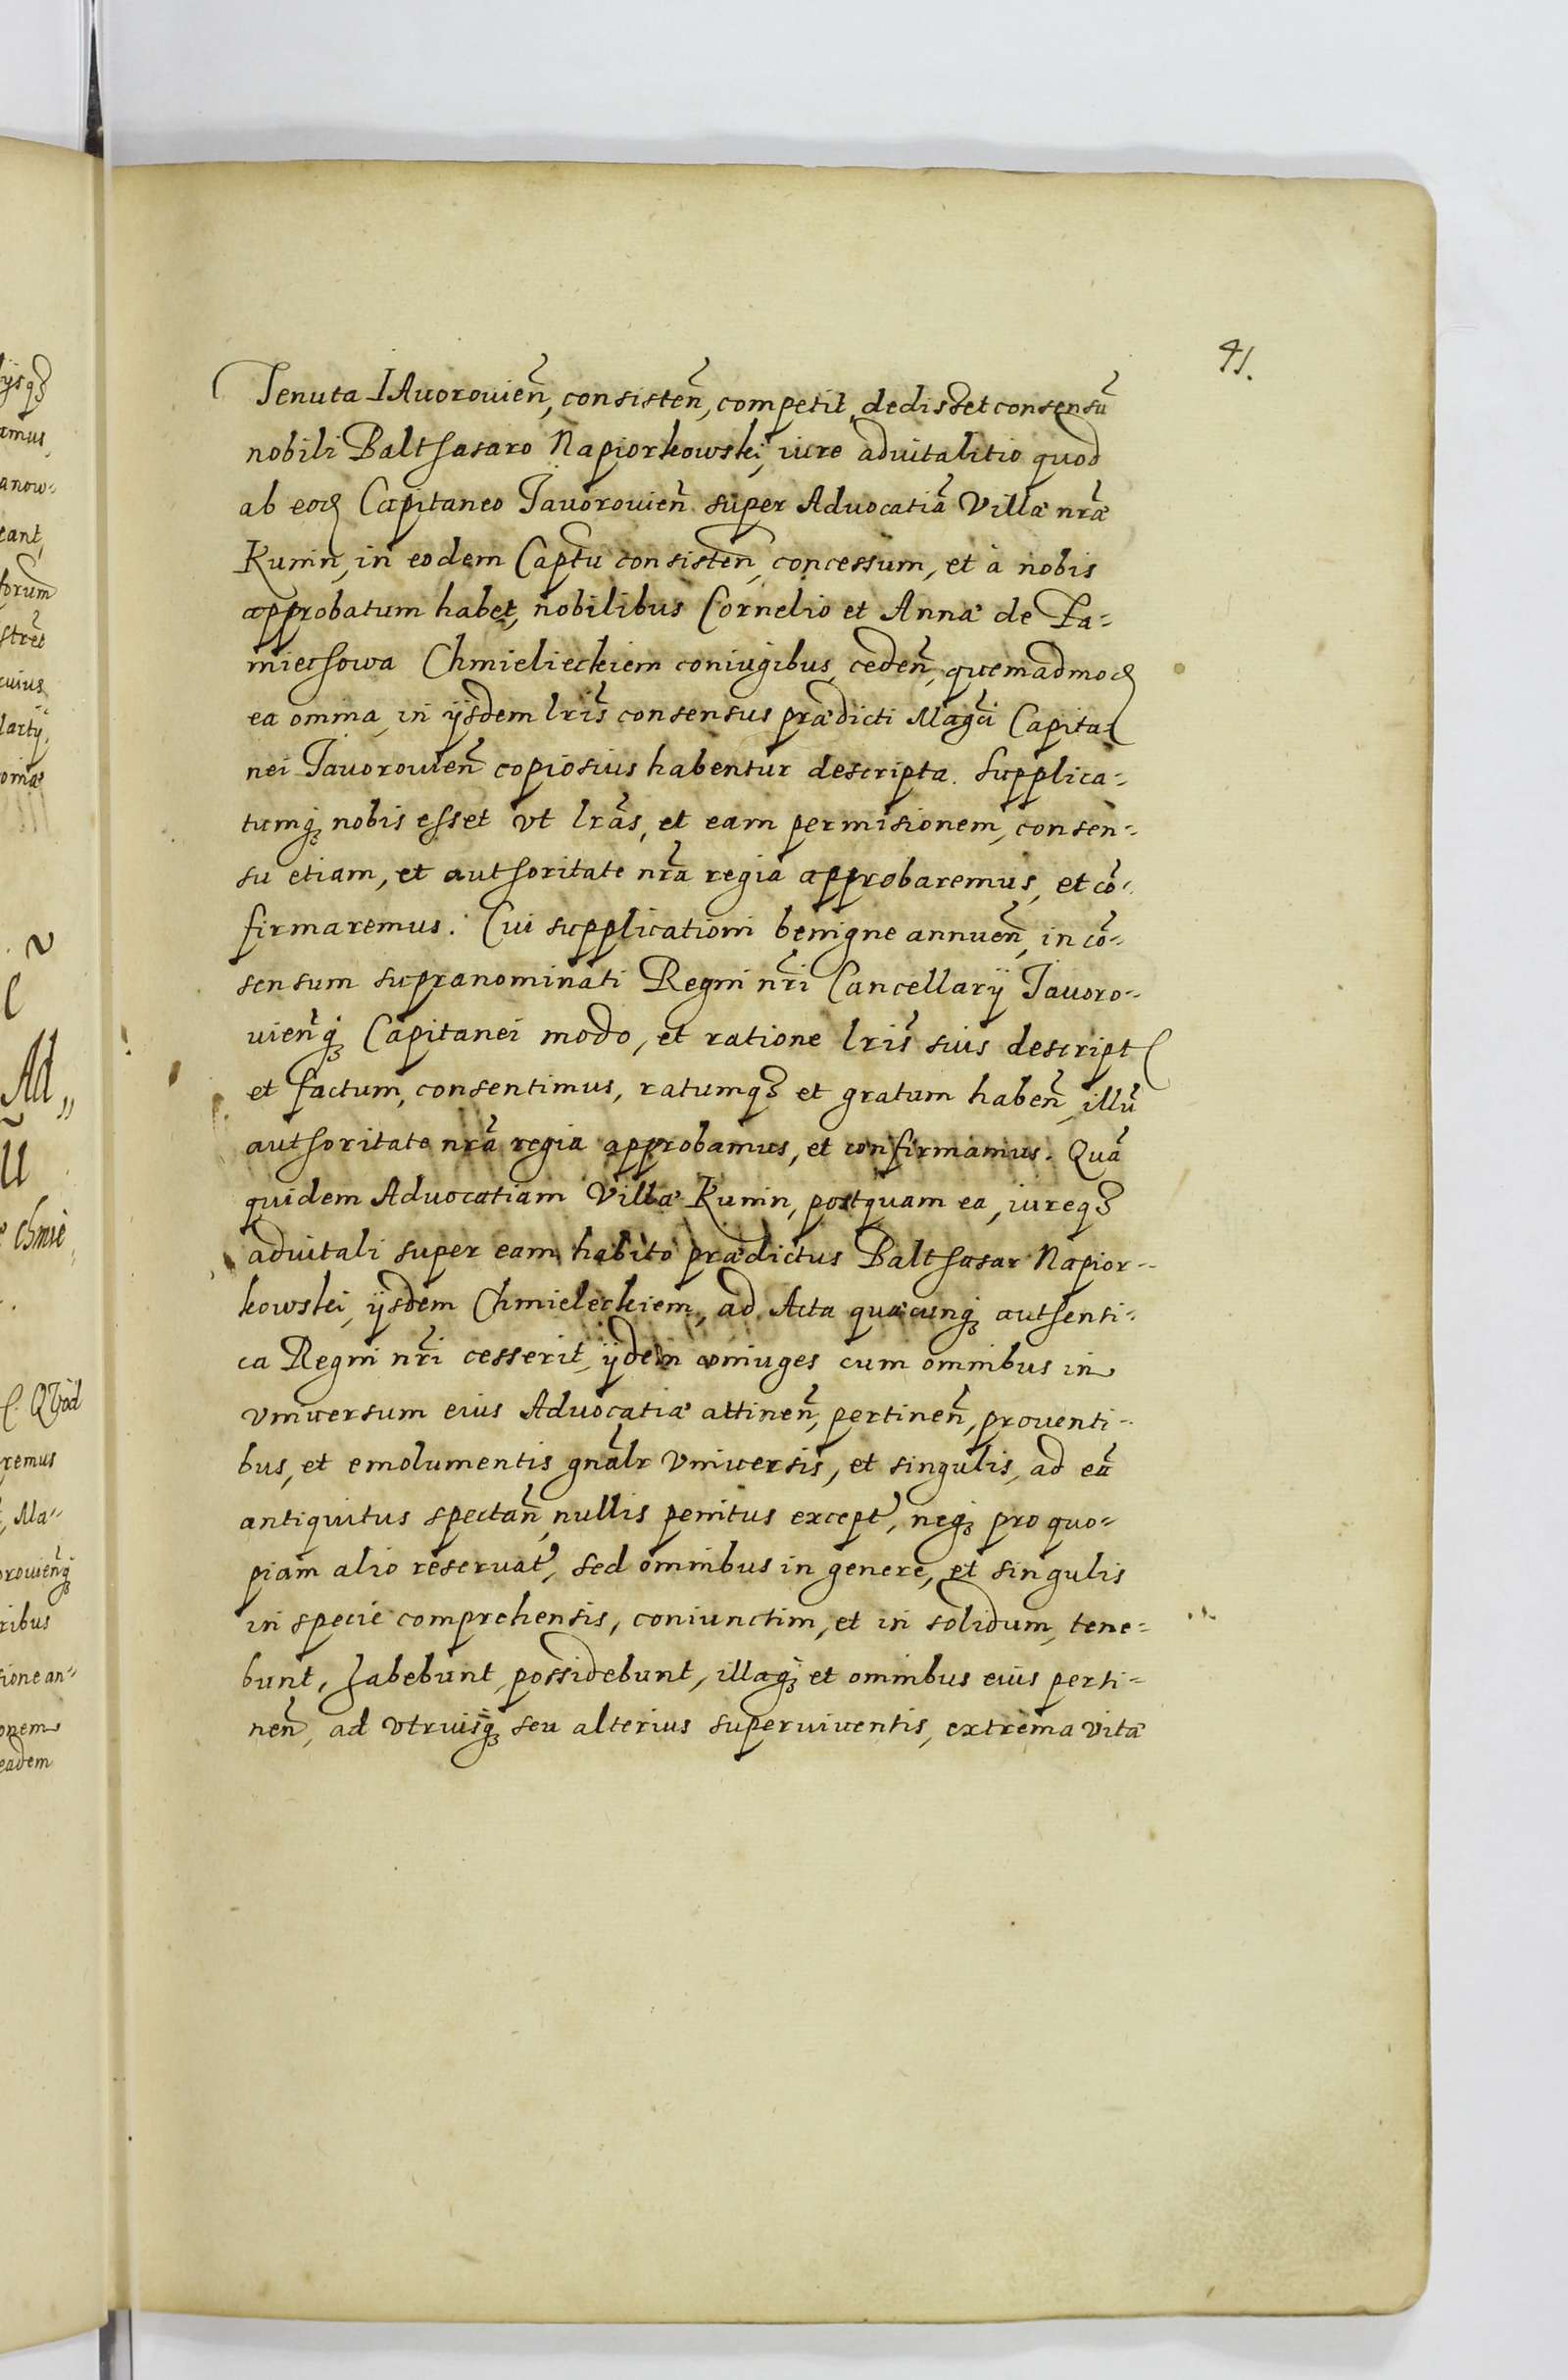 41.
Tenuta IAuorouien̄, consisten̄, competit, dedisset consensū
nobili Balthasaro Napiorkowski, iure aduitalitio quod
ab eod Capitaneo Jauorouien̄ super Aduocatiā Villæ nrǣ
Kunin, in eodem Captū consisten̄, concessum, et à nobis
approbatum habet, nobilibus Cornelio et Annæ de Za=
miechowa Chmielieckiem coniugibus, ceden̄, quemadmod
ea omnia, in ijsdem lris̄ consensus prædicti Magc̄i Capita=
nei Jauorowien̄ copiosius habentur descripta. Supplica=
tumq̨ nobis esset vt lrās, et eam permisionem, consen=
su etiam, et authoritate nrā regia approbaremus, et cō=
firmaremus. Cui supplicationi benigne annuen̄, in cō=
sensum supranominati Regni nrī Cancellarij Jauoro=
uien̄q̨ Capitanei modo, et ratione lris̄ suis descript
et factum, consentimus, ratumq̨ et gratum haben̄, illū
authoritate nrā regia approbamus, et confirmamus. Quā
quidem Aduocatiam Villæ Kunin, postquam ea, iureq̨
aduitali super eam habito prædictus Balthasar Napior=
kowski, ijsdem Chmieleckiem, ad Acta quæcunq̨ authenti=
ca Regni nrī cesserit, ijdem coniuges cum omnibus in
vniuersum eius Aduocatiæ attinen̄, pertinen̄, prouenti=
bus, et emolumentis gnālr vniuersis, et singulis, ad eā
antiquitus spectan̄, nullis penitus except, neq̨ pro quo=
piam alio reseruat, sed omnibus in genere, et singulis
in specie comprehensis, coniunctim, et in solidum, tene=
bunt, habebunt, possidebunt, illaq̨ et omnibus eius perti=
nen̄, ad vtruisq̨ seu alterius superuiuentis, extrema vitæ